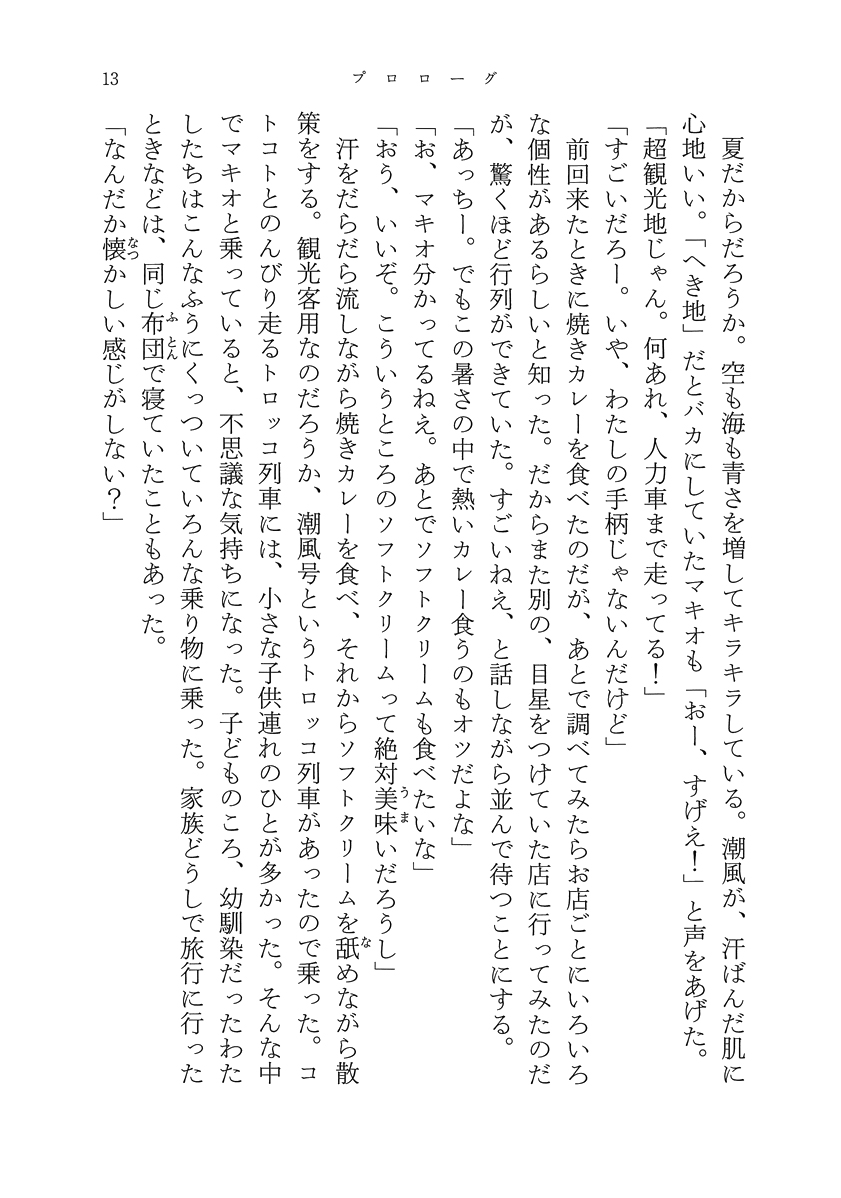 プロローグ
13
夏だからだろうか。空も海も青さを増してキラキラしている。潮風が、汗ばんだ肌に
心地いい。「へき地」だとバカにしていたマキオも「おー、すげえ！」と声をあげた。
「超観光地じゃん。何あれ、人力車まで走ってる！」
「すごいだろー。いや、わたしの手柄じゃないんだけど」
前回来たときに焼きカレーを食べたのだが、あとで調べてみたらお店ごとにいろいろ
な個性があるらしいと知った。だからまた別の、目星をつけていた店に行ってみたのだ
が、驚くほど行列ができていた。すごいねえ、と話しながら並んで待つことにする。
「あっちー。でもこの暑さの中で熱いカレー食うのもオツだよな」
「お、マキオ分かってるねえ。あとでソフトクリームも食べたいな」
「おう、いいぞ。こういうところのソフトクリームって絶対美味いだろうし」
汗をだらだら流しながら焼きカレーを食べ、それからソフトクリームを舐めながら散
策をする。観光客用なのだろうか、潮風号というトロッコ列車があったので乗った。コ
トコトとのんびり走るトロッコ列車には、小さな子供連れのひとが多かった。そんな中
でマキオと乗っていると、不思議な気持ちになった。子どものころ、幼馴染だったわた
したちはこんなふうにくっついていろんな乗り物に乗った。家族どうしで旅行に行った
ときなどは、同じ布団で寝ていたこともあった。
「なんだか懐かしい感じがしない？」